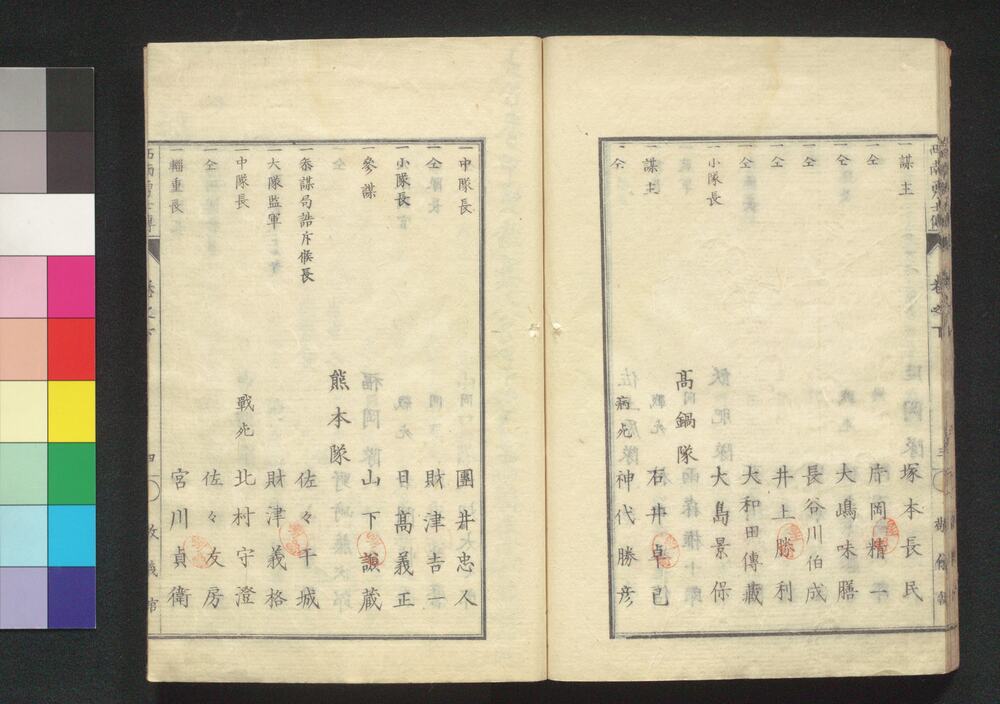 一謀主 塚本長民
一仝 片岡精一
一仝 大嶋味膳
一仝 長谷川伯成
一仝 井上勝利
一仝 大和田傳藏
一小隊長 大島景保
高鍋隊
一謀主 石井卓已
一仝 病死 神代勝彦
三
一中隊長 團井忠入
一仝 財津吉一
一小隊長 日髙義正
一參謀 山下謙藏
熊本隊
一參謀局詰斥候長 佐々干城
一大隊監軍 財津義格
一中隊長 戰死 北村守澄
一仝 佐々友房
一輜重長 宮川貞衛
四